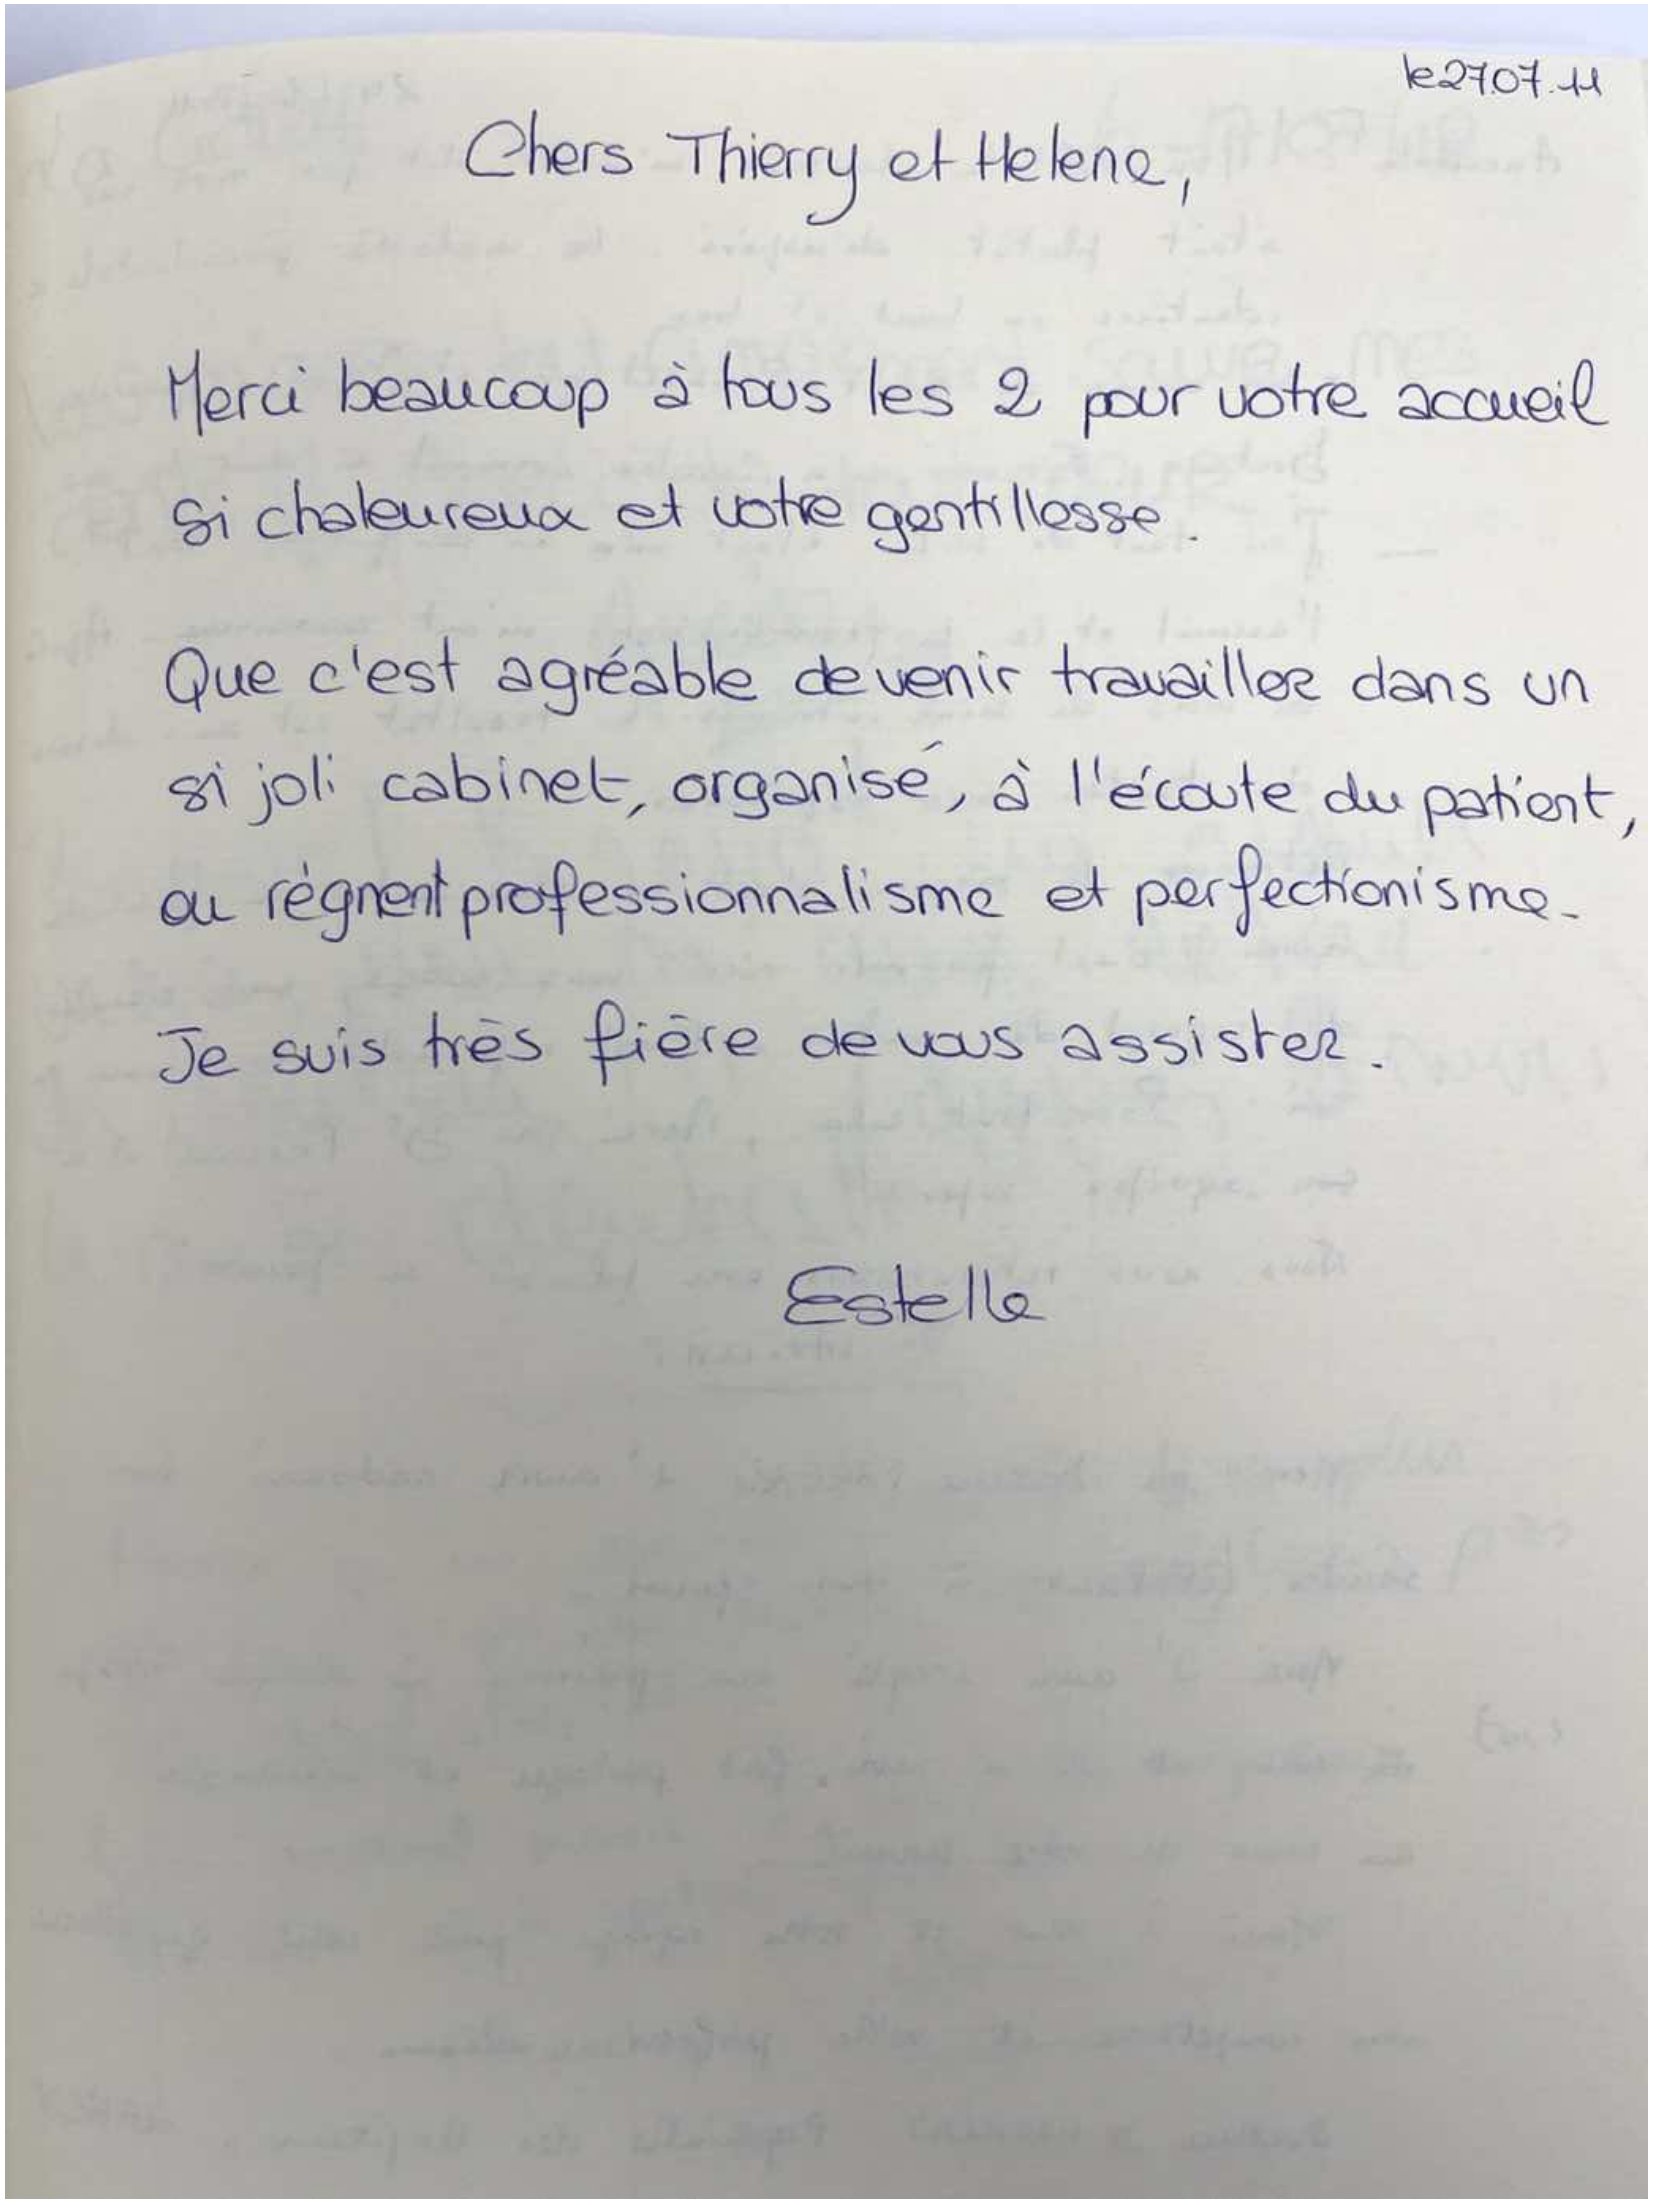 le 27.07.11
Chers Thierry et Helene,
Merci beaucoup à tous les 2 pour votre accueil
si chaleureux et votre gentillesse.
Que c'est agréable de venir travailler dans un
si joli cabinet, organisé, à l'écoute du patient,
ou règnent professionnalisme et perfectionisme.
Je suis très fière de vous assister.
Estelle